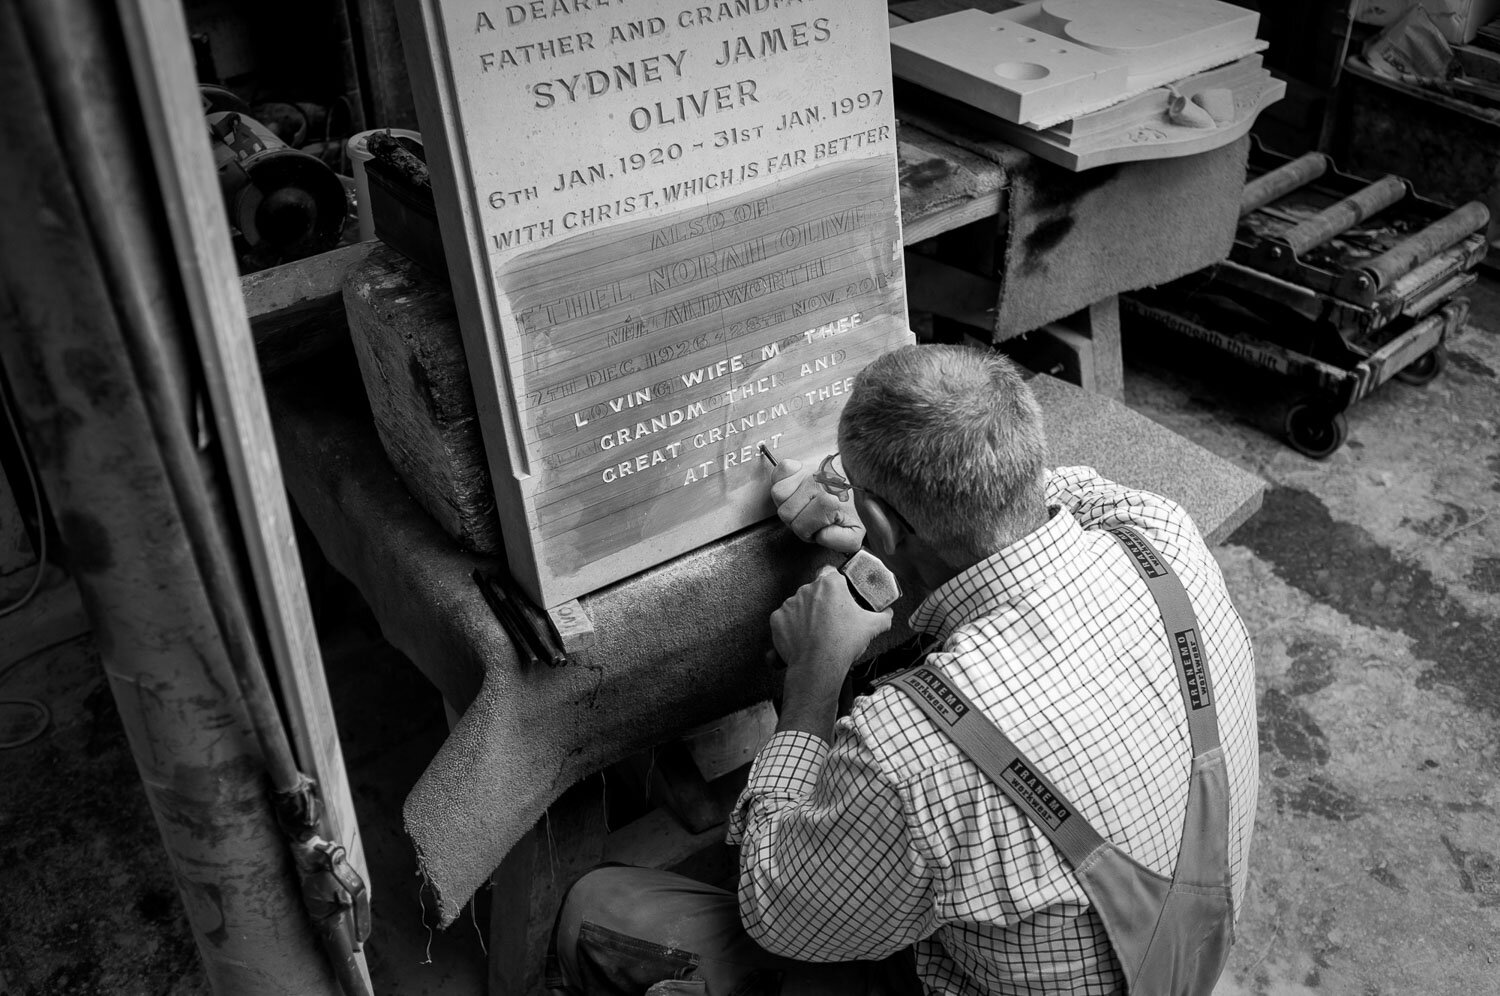 A DEARLY
FATHER AND
SYDNEY JAMES
OLIVER
6TH JAN. 1920 - 31ST JAN. 1997
WITH CHRIST, WHICH IS FAR BETTER
ALSO OF
ETHEL NORAH OLIVER
NÉE ALDWORTH
7TH DEC. 1926 - 28TH NOV.
LOVING WIFE MOTHER
GRANDMOTHER AND
GREAT GRANDMOTHER
AT REST
underneath this lift
TRANEMO
WORKWEAR
TRANEMO
WORKWEAR
TRANEMO
WORKWEAR
TRANEMO
WORKWEAR